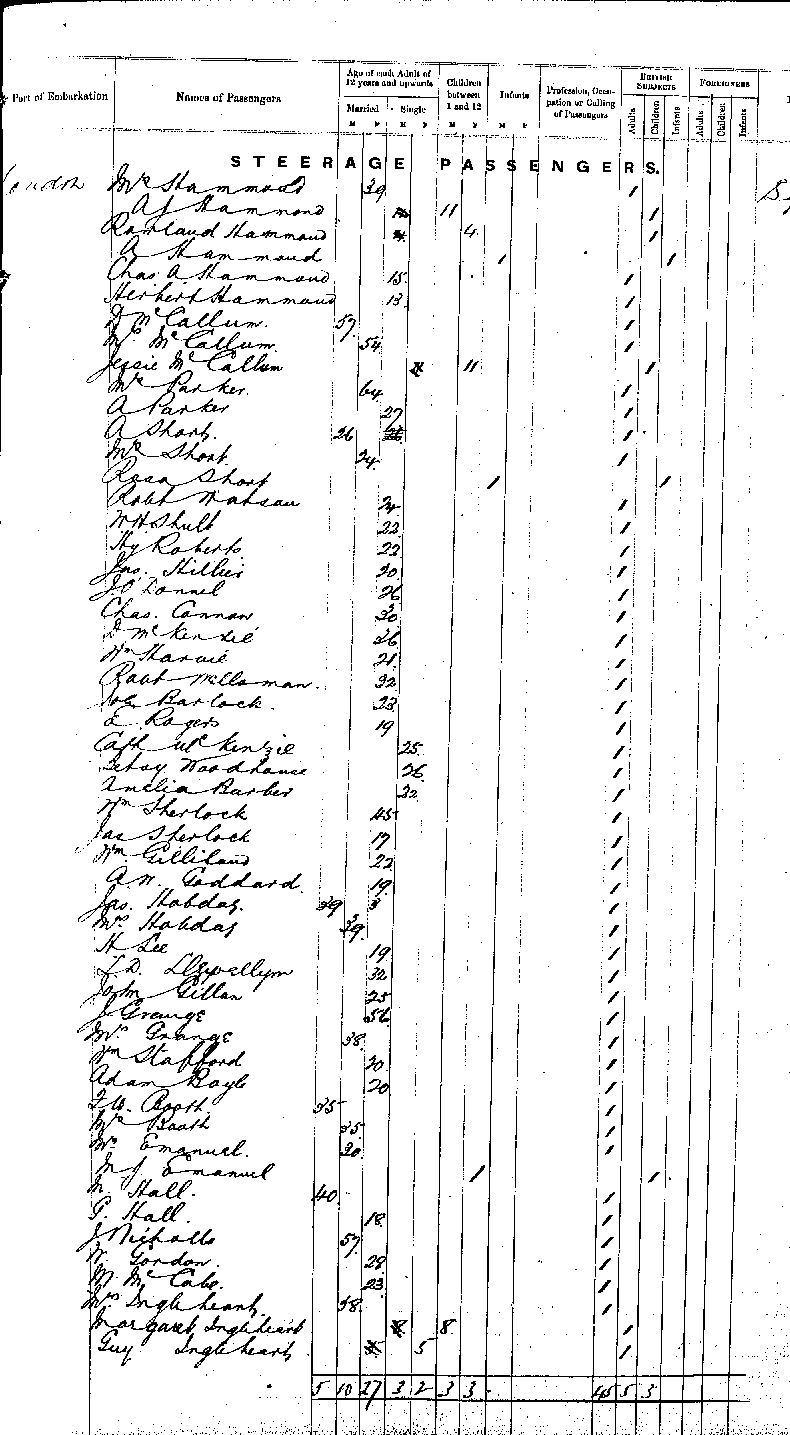 Port of Embarkation Names of Passengers Age of each Adult of 12 years and upwards Children between 1 and 12 Infants Profession, Occupation or Calling of Passengers BRITISH SUBJECTS FOREIGNERS
Married Single
M F M F M F M F Adults Children Infants Adults Children Infants
STEERAGE PASSENGERS.
London Mrs Hammond 39 1
A J Hammond 11 1
Rowland Hammond 4 1
A Hammond 1 1
Chas. A Hammond 15 1
Herbert Hammond 13 1
D McCallum 57 1
McCallum 54 1
Jessie McCallum 11 1
Mrs Parker 64 1
A Parker 27 1
A Short 26 1
Mrs Short 24 1
Rosa Short 1 1
Robt Watson 24 1
W H Shult 22 1
Hy Roberts 22 1
Jas. Hillier 20 1
J O'Donnel 26 1
Chas. Cannon 30 1
D McKenzie 26 1
Wm Harvie 21 1
Robt 32 1
Barlock 23 1
E Rogers 19 1
Cath McKenzie 25 1
Betsy Woodhouse 26 1
Amelia Barber 32 1
Wm Sherlock 45 1
Jas Sherlock 17 1
Wm Gilliland 22 1
A. W. Goddard 19 1
Jas. Hobday 39 1
Mrs Hobday 39 1
H Lee 19 1
L. D. Llewellyn 32 1
John Gillan 25 1
J Grange 56 1
Mrs Grange 38 1
Wm Stafford 20 1
Adam Boyle 20 1
Booth 35 1
Mrs Booth 35 1
Mrs Emanuel 30 1
M J Emanuel 1 1
M Hall 40 1
G. Hall 18 1
J Nicholls 57 1
W. Gordon 28 1
M McCabe 23 1
Mrs Ingleheart 58 1
Margaret Ingleheart 8 1
Guy Ingleheart 5 1
5 10 27 3 2 3 3 45 5 3